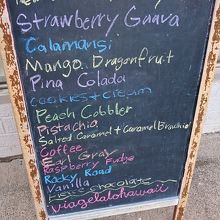 Strawberry Guava
Calamansi
Mango Dragonfruit
Pina Colada
Cookies + Cream
Peach Cobbler
Pistachio
Salted Caramel + Caramel Brownie
Coffee
Earl Grey
Raspberry Fudge
Rocky Road
Vanilla
Chocolate
viagelatohawaii